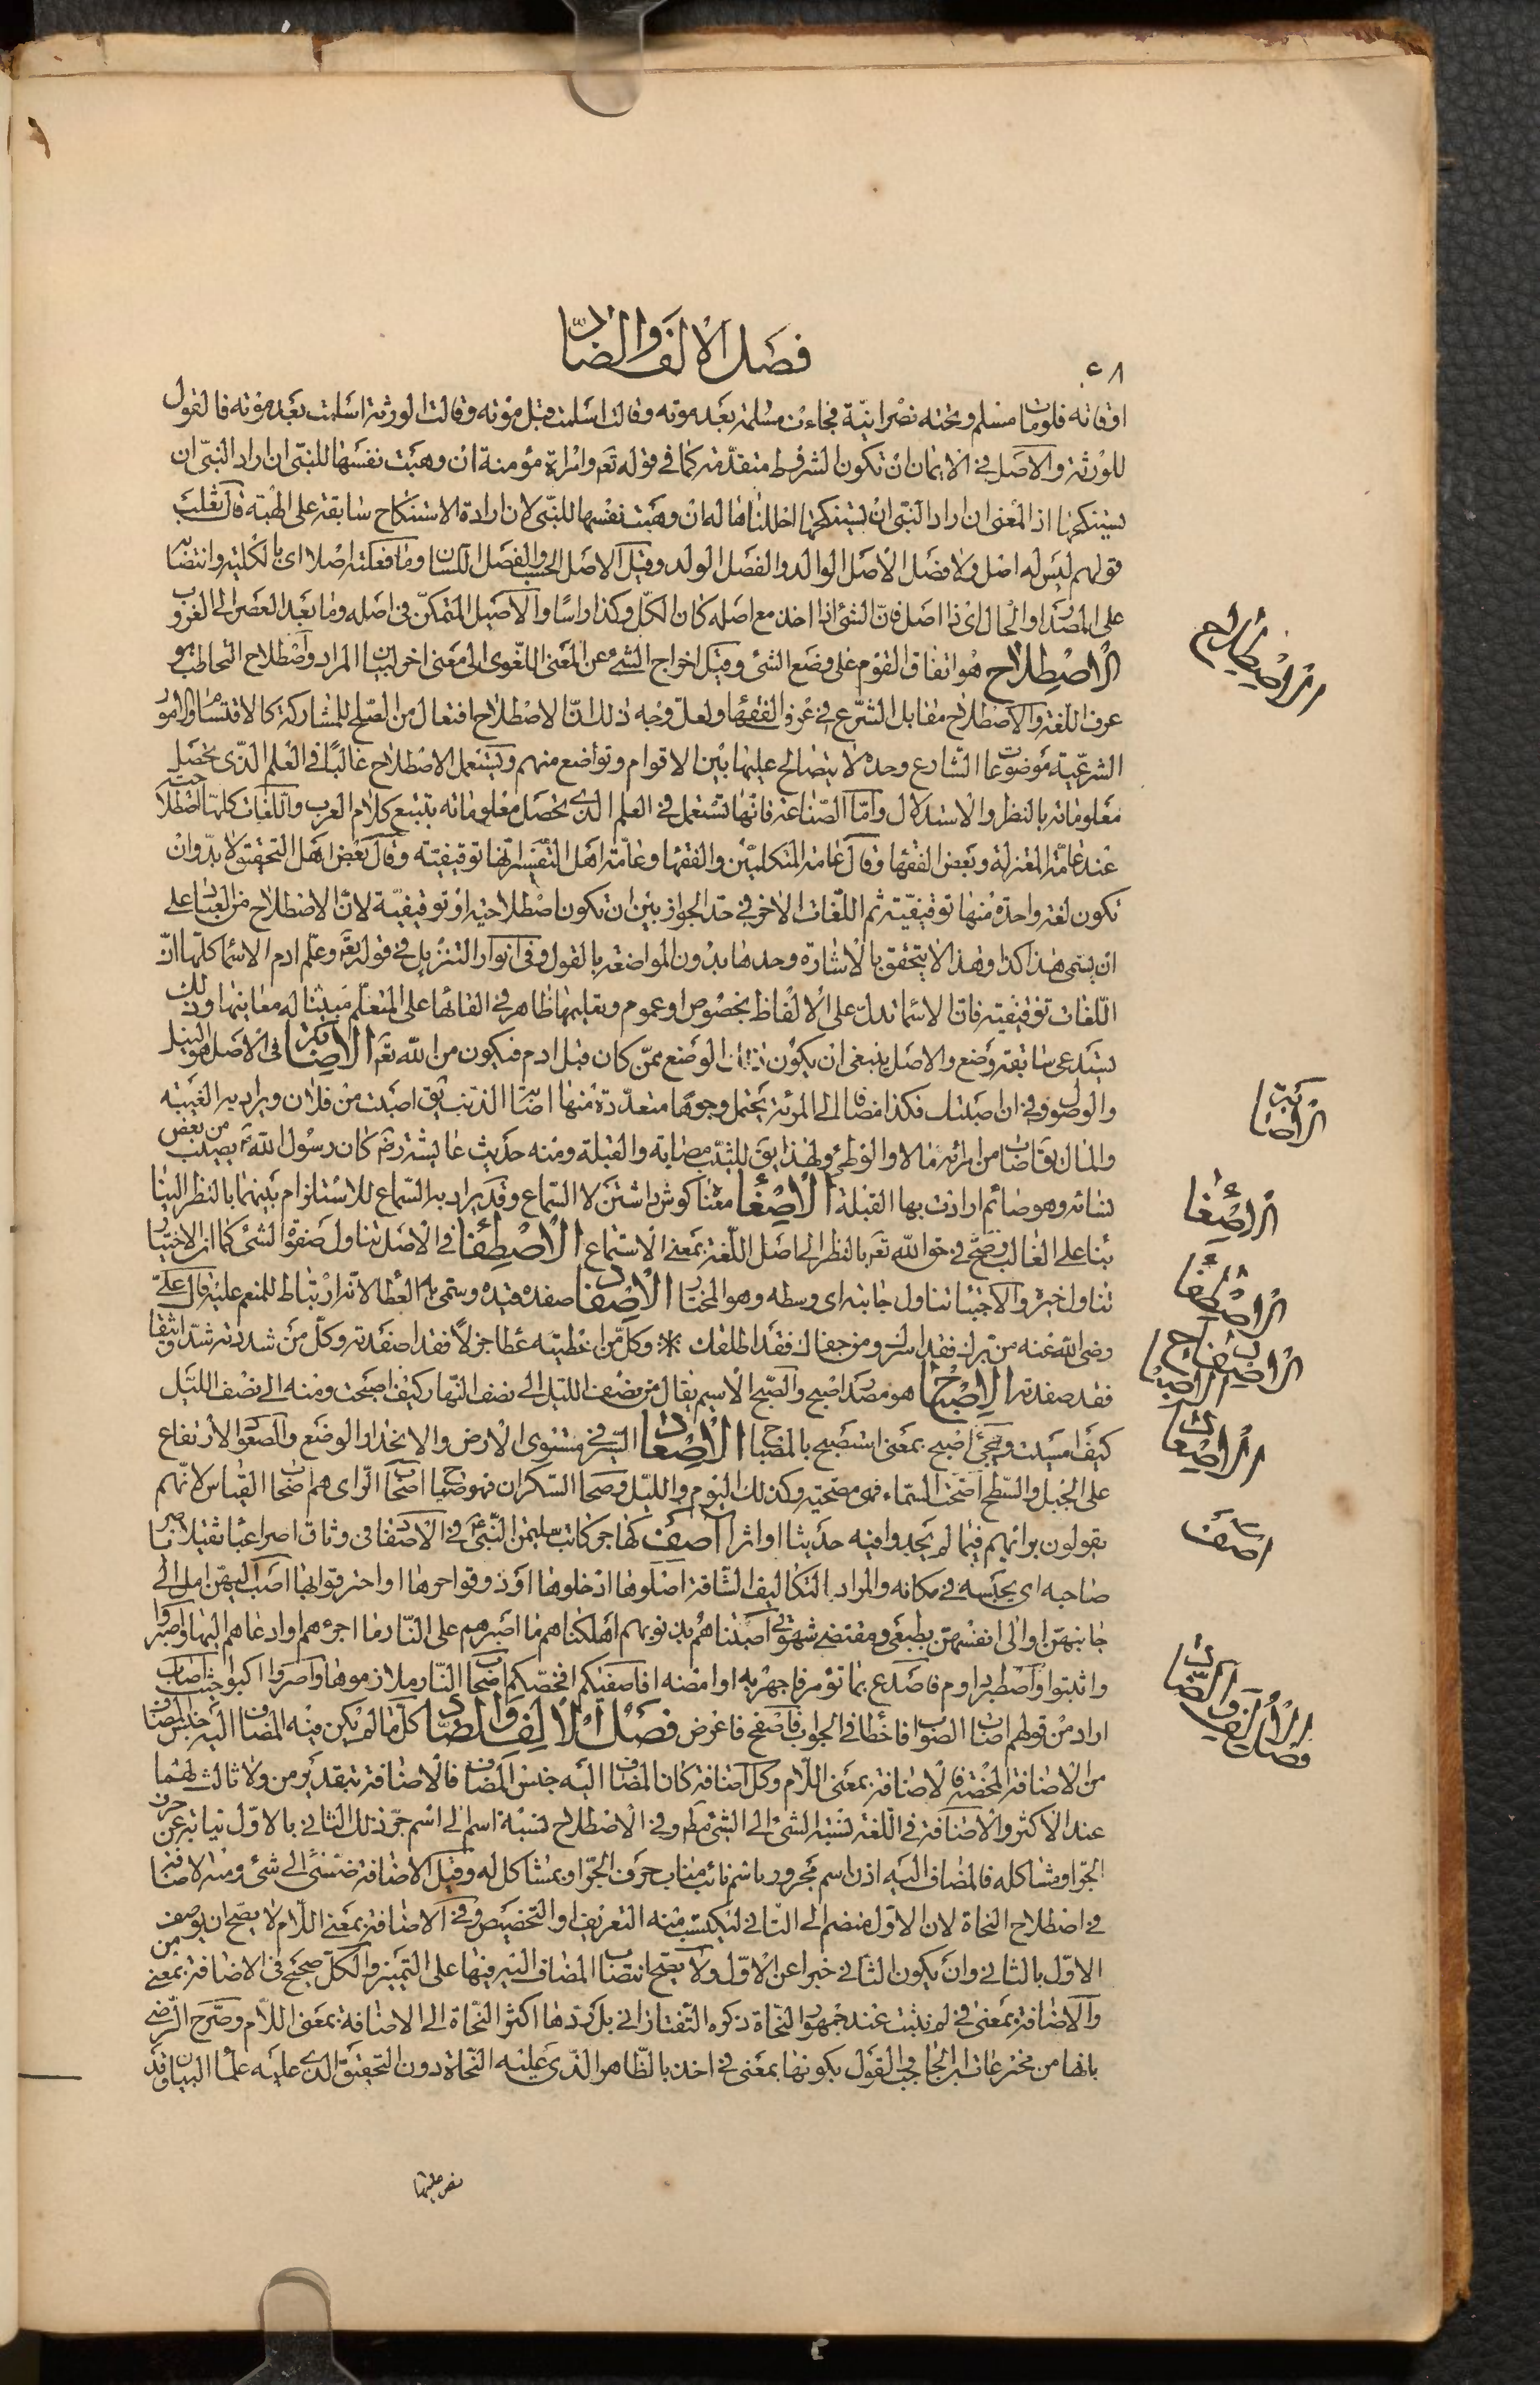 فصل الالف والضاد
٤٨
اوقاته فلو مات مسلم وتحته نصرانية فجاءت مسلمة بعد موته وقالت اسلمت قبل موته وقالت الورثة اسلمت بعد موته فالقول
للورثة والاصل فى الايمان ان تكون الشروط متقدمة كما فى قوله تعم وامراة مؤمنة ان وهبت نفسها للنبى ان اراد النبى ان
يستنكحها اذ المعنى ان اراد النبى ان يستنكحها احللناها له ان وهبت نفسها للنبى لان ارادة الاستنكاح سابقة على الهبة قال ثعلب
قولهم ليس له اصل ولا فصل الاصل الوالد والفصل الولد وقيل الاصل الحسب والفصل اللسان وما فعلته اصلا اى بالكلية وانتصابه
على المصدر او الحال اى ذا اصل فان الشئ اذا اخذ مع اصله كان الكل وكذا راسا والاصيل المتمكن فى اصله وما بعد العصر الى الغروب
الاصطلاح هو اتفاق القوم على وضع الشئ وقيل اخراج الشئ عن المعنى اللغوى الى معنى اخر لبيان المراد واصطلاح التخاطب هو
عرف اللغة والاصطلاح مقابل الشرع فى عرف الفقهاء ولعل وجه ذلك ان الاصطلاح افتعال من الصلح للمشاركة كالاقتسام والامور
الشرعية موضوعات الشارع وحده لا يتصالح عليها بين الاقوام وتواضع منهم ويستعمل الاصطلاح غالبا فى العلم الذى يحصل
معلوماته بالنظر والاستدلال واما الصناعة فانها تستعمل فى العلم الذى يحصل معلوماته بتتبع كلام العرب واللغات كلها اصطلاحية
عند عامة المعتزلة وبعض الفقها وقال عامة المتكلمين والفقها وعامة اهل التفسير انها توقيفية وقال بعض اهل التحقيق لا بد وان
تكون لغة واحدة منها توقيفية ثم اللغات الاخر فى حد الجواز بين ان تكون اصطلاحية او توقيفية لان الاصطلاح من العباد على
ان يسمى هذا كذا وهذا كذا لا يتحقق بالاشارة وحدها بدون المواضعة بالقول وفى انوار التنزيل فى قوله تعم وعلم ادم الاسما كلها ان
اللغات توقيفية فان الاسما تدل على الالفاظ بخصوص او عموم وتعليمها ظاهر فى القائها على المتعلم مبينا له معانيها وذلك
يستدعى سابقة وضع والاصل ينبغى ان يكون ذلك الوضع ممن كان قبل ادم فيكون من الله تعم الاصابة فى الاصل هو النيل
والوصول وفى ان اصبتك فكذا مضافا الى المرئة يحتمل وجوها متعددة منها اصابة الذنب يق اصبت من فلان ويراد به الغيبة
والمال يق اصاب من امرئة مالا والوطى ولهذا يق للثيب مصابة والقبلة ومنه حديث عايشة رض كان رسول الله يصيب من بعض
نسائه وهو صائم ارادت بها القبلة الاصغاء معناه كوش داشتن لا السماع وقد يراد به السماع للاستلزام بينهما بالنظر الينا
بنا على الغالب وصح فى حق الله تعم بالنظر الى اصل اللغة بمعنى الاستماع الاصطفاء فى الاصل تناول صفوة الشئ كما ان الاختيار
تناول خيره والاجتبا تناول جابته اى وسطه وهو المختار الاصفاد صفده قيده وسمى به العطا لانه ارتباط للمنعم عليه قال على
رضى الله عنه من برك فقد اسرك ومن جفاك فقد اطلقك * وكل من اعطيته عطا جزلا فقد اصفدته وكل من شددته شدا وثيقا
فقد صفدته الاصباح هو مصدر اصبح والصبح الاسم يقال من نصف الليل الى نصف النهار كيف اصبحت ومنه الى نصف الليل
كيف امسيت ويجئ اصبح بمعنى استصبح بالمصباح الاصعاد السير فى مستوى الارض والانحدار الوضع والصعود الارتفاع
على الجبل والسطح اصحت السماء فهى مصحية وكذلك اليوم والليل وصحا السكران فهو صاح اصحاب الراى هم اصحاب القياس لانهم
يقولون برايهم فيما لم يجدوا فيه حديثا او اثرا اصف كهاجر كاتب سليمن النبى عم فى الاصفاد فى وثاق اصرا عبا ثقيلا ياصر
صاحبه اى يحبسه فى مكانه والمراد التكاليف الشاقة اصلوها ادخلوها او ذوقوا حرها او احترقوا بها اصب اليهن امل الى
جانبهن او الى انفسهن بطبعى ومقتضى شهوتى اصبناهم بذنوبهم اهلكناهم ما اصبرهم على النار ما اجرؤهم او ادعاهم اليها واصبروا
واثبتوا واصطبر داوم فاصدع بما تؤمر فاجهر به او امضه افاصفيكم افخصكم اصحاب النار ملازموها واصروا اكبوا حيث اصاب
اراد من قولهم اصاب الصواب فاخطا فى الجواب فاصفح فاعرض فصل الالف والضاد كل ما لم يكن فيه المضاف اليه جنس المضاف
من الاضافة المحضة فالاضافة بمعنى اللام وكل اضافة كان المضاف اليه جنس المضاف فالاضافة بتقدير من ولا ثالث لهما
عند الاكثر والاضافة فى اللغة نسبة الشئ الى الشئ مطم وفى الاصطلاح نسبة اسم الى اسم جر ذلك الثانى بالاول نيابة عن حرف
الجر او مشاكله فالمضاف اليه اذن اسم مجرور باسم نائب مناب حرف الجر او بمشاكل له وقيل الاضافة ضم شئ الى شئ ومنه الاضافة
فى اصطلاح النحاة لان الاول منضم الى الثانى ليكتسب منه التعريف او التخصيص وفى الاضافة بمعنى اللام لا يصح ان يوصف
الاول بالثانى وان يكون الثانى خبرا عن الاول ولا يصح انتصاب المضاف اليه فيها على التميز والكل صحيح فى الاضافة بمعنى من
والاضافة بمعنى فى لم تثبت عند جمهور النحاة ذكره التفتازانى بل ردها اكثر النحاة الى الاضافة بمعنى اللام وصرح الرضى
بانها من مخترعات ابن الحاجب القول بكونها بمعنى فى اخذ بالظاهر الذى عليه النحاة دون التحقيق الذى عليه علما البيان وقد
الاصطلاح
الاصابة
الاصغاء
الاصطفاء
الاصفاد
الاصباح
الاصعاد
اصف
فصل الالف والضاد